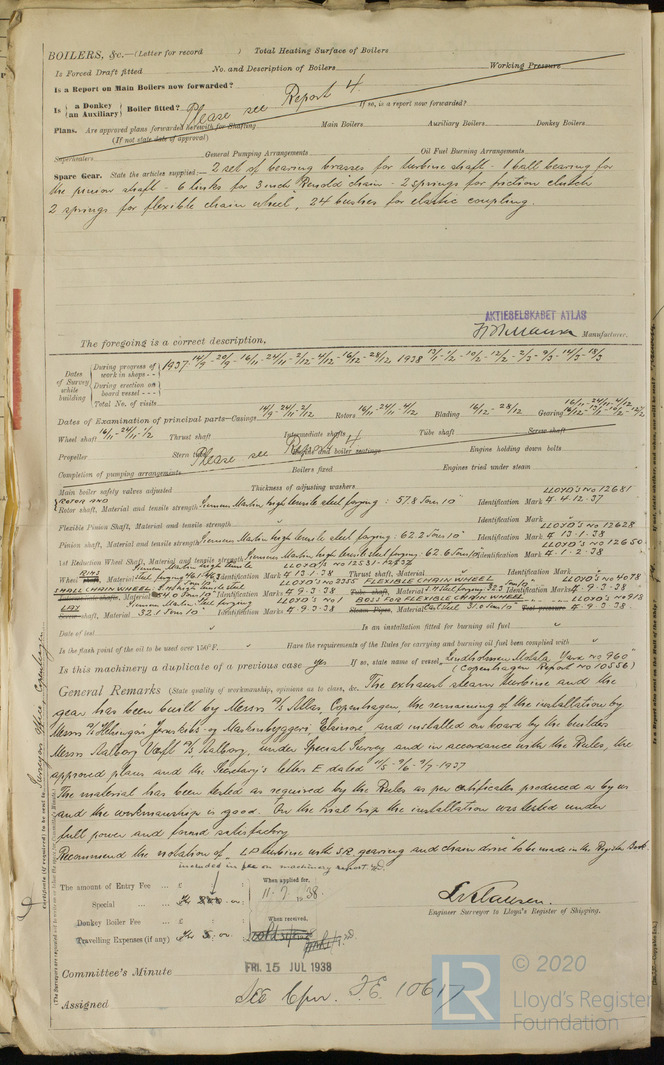 BOILERS, &c.—(Letter for record ) Total Heating Surface of Boilers
Is Forced Draft fitted No. and Description of Boilers Working Pressure
Is a Report on Main Boilers now forwarded?
Is { a Donkey / an Auxiliary } Boiler fitted? If so, is a report now forwarded?
Please see Report 4.
Plans. Are approved plans forwarded herewith for Shafting Main Boilers Auxiliary Boilers Donkey Boilers
(If not state date of approval)
Superheaters General Pumping Arrangements Oil Fuel Burning Arrangements
Spare Gear. State the articles supplied:— 2 set of bearing brasses for turbine shaft - 1 ball bearing for
the pinion shaft - 6 links for 3 inch "Renold" chain - 2 springs for friction clutch
2 springs for flexible chain wheel, 24 bushes for elastic coupling.
AKTIESELSKABET ATLAS
The foregoing is a correct description. Manufacturer.
Dates of Survey while building
During progress of work in shops - - 1937 14/9 - 20/9 - 16/11 - 24/11 - 2/12 - 4/12 - 16/12 - 28/12 1938
During erection on board vessel - - -
Total No. of visits
Dates of Examination of principal parts—Casings 14/9 - 24/11 - 2/12 Rotors 16/11 - 24/11 - 4/12 Blading 16/12 - 28/12 Gearing
Wheel shaft 16/11 - 24/11 - 1/2 Thrust shaft Intermediate shafts Tube shaft Screw shaft
Propeller Stern tube Engine and boiler seatings Engine holding down bolts
Please see Report 4
Completion of pumping arrangements Boilers fixed Engines tried under steam
Main boiler safety valves adjusted Thickness of adjusting washers
LLOYD'S No 12681
ROTOR AND
Rotor shaft, Material and tensile strength Siemens Martin high tensile steel forging : 57.8 Tons/□" Identification Mark 4. 4. 12. 37
Flexible Pinion Shaft, Material and tensile strength " Identification Mark "
LLOYD'S No 12628
Pinion shaft, Material and tensile strength Siemens Martin high tensile steel forging : 62.2 Tons/□" Identification Mark 4 13. 1. 38
LLOYD'S No 12650
1st Reduction Wheel Shaft, Material and tensile strength Siemens Martin high tensile steel forging : 62.6 Tons/□" Identification Mark 4. 1. 2. 38
Siemens Martin high tensile LLOYD'S No 12531-12537
RIMS
Wheel shaft, Material steel forging Identification Mark 4 13 1. 38 Thrust shaft, Material " Identification Mark "
LLOYD'S No 3355 FLEXIBLE CHAIN WHEEL LLOYD'S No 4078
SMALL CHAIN WHEEL
Intermediate shafts, Material Identification Marks 4. 9. 3. 38 Tube shaft, Material Steel forging 32.3 Tons/□" Identification Marks 4. 9. 3. 38
LLOYD'S No 1 BOSS FOR FLEXIBLE CHAIN WHEEL LLOYD'S No 918
Siemens Martin Steel forging
Screw shaft, Material 32.1 Tons/□" Identification Marks 4. 9. 3. 38 Steam Pipes, Material Cast Steel 31.0 Tons/□" Test pressure 4. 9. 3. 38
Date of test " Is an installation fitted for burning oil fuel "
Is the flash point of the oil to be used over 150°F. " Have the requirements of the Rules for carrying and burning oil fuel been complied with "
Is this machinery a duplicate of a previous case yes If so, state name of vessel "Lindholmen Motala Yard No 960"
(Copenhagen Report No 10556)
General Remarks (State quality of workmanship, opinions as to class, &c. The exhaust steam turbine and the
gear has been built by Messrs A/S Atlas, Copenhagen, the remaining of the installation by
Messrs A/S Helsingør Jernskibs- og Maskinbyggeri, Elsinore and installed on board by the builders
Messrs Aalborg Værft A/S, Aalborg, under Special Survey and in accordance with the Rules, the
approved plans and the Secretary's letters E dated 11/5 - 9/6 - 9/7 - 1937
The material has been tested as required by the Rules as per certificates produced to by us
and the workmanship is good. On the trial trip the installation was tested under
full power and found satisfactory
Recommend the notation of "LP turbine with SR gearing and chain drive" to be made in the Register Book
included in fee on machinery report 4D.
The amount of Entry Fee ... £ : : When applied for,
Special ... £ 11-7 1938.
Donkey Boiler Fee ... £ : : When received,
Travelling Expenses (if any) £
Engineer Surveyor to Lloyd's Register of Shipping.
Committee's Minute FRI. 15 JUL 1938
Assigned See Cpn. F.E. 10617
Certificate (if required) to be sent to Surveyors Office, Copenhagen
(The Surveyors are requested not to write on or below the space for Committee's Minute.)
LR © 2020
Lloyd's Register
Foundation